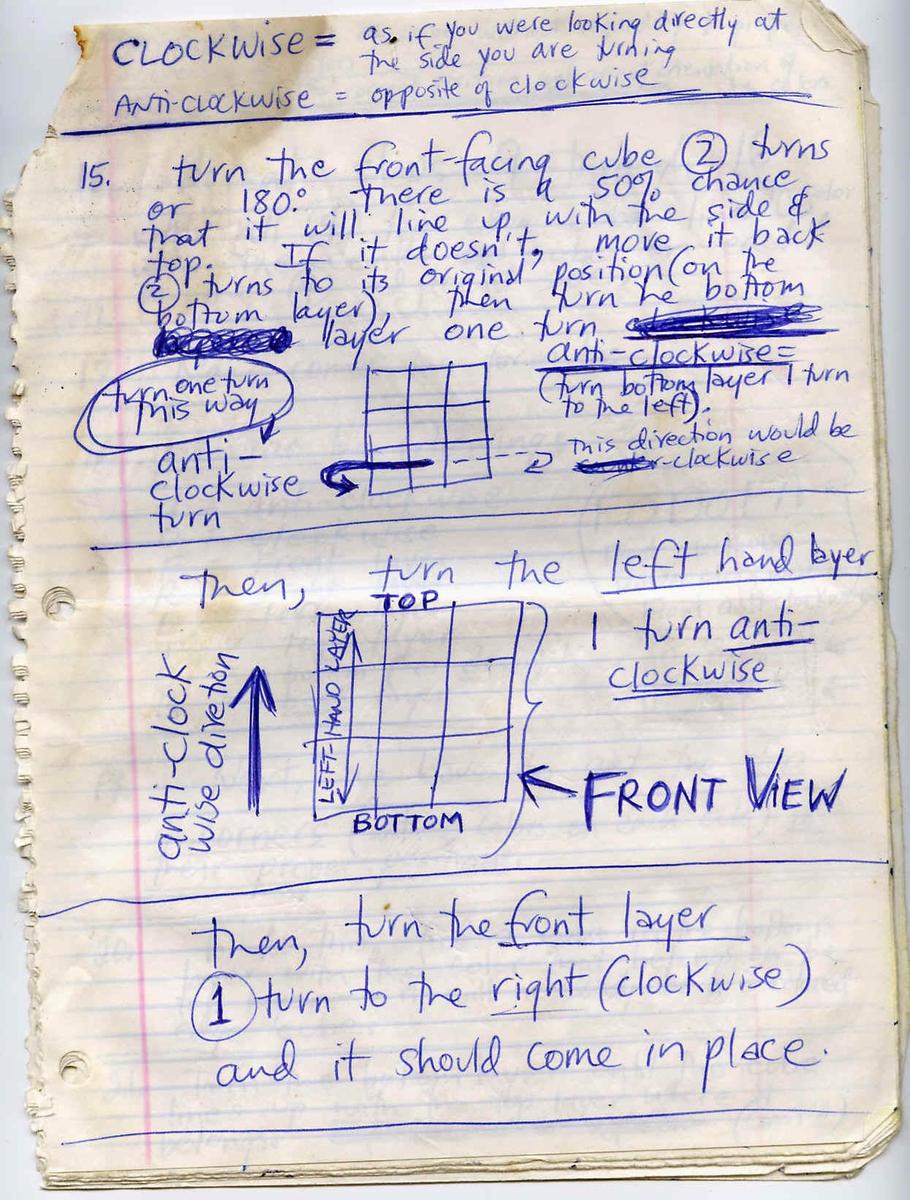 CLOCKWISE = as if you were looking directly at
the side you are turning
ANTI-CLOCKWISE = opposite of clockwise
15. turn the front-facing cube 2 turns
or 180.° There is a 50% chance
that it will line up with the side &
top. If it doesn't, move it back
2 turns to its original position (on the
bottom layer), then turn the bottom
layer one turn
anti-clockwise =
(turn bottom layer 1 turn
to the left).
turn one turn
this way
anti-
clockwise
turn
This direction would be
-clockwise
Then, turn the left hand layer
TOP
LEFT-HAND LAYER
BOTTOM
anti-clock
wise diretion
1 turn anti-
clockwise
FRONT VIEW
Then, turn the front layer
1 turn to the right (clockwise)
and it should come in place.